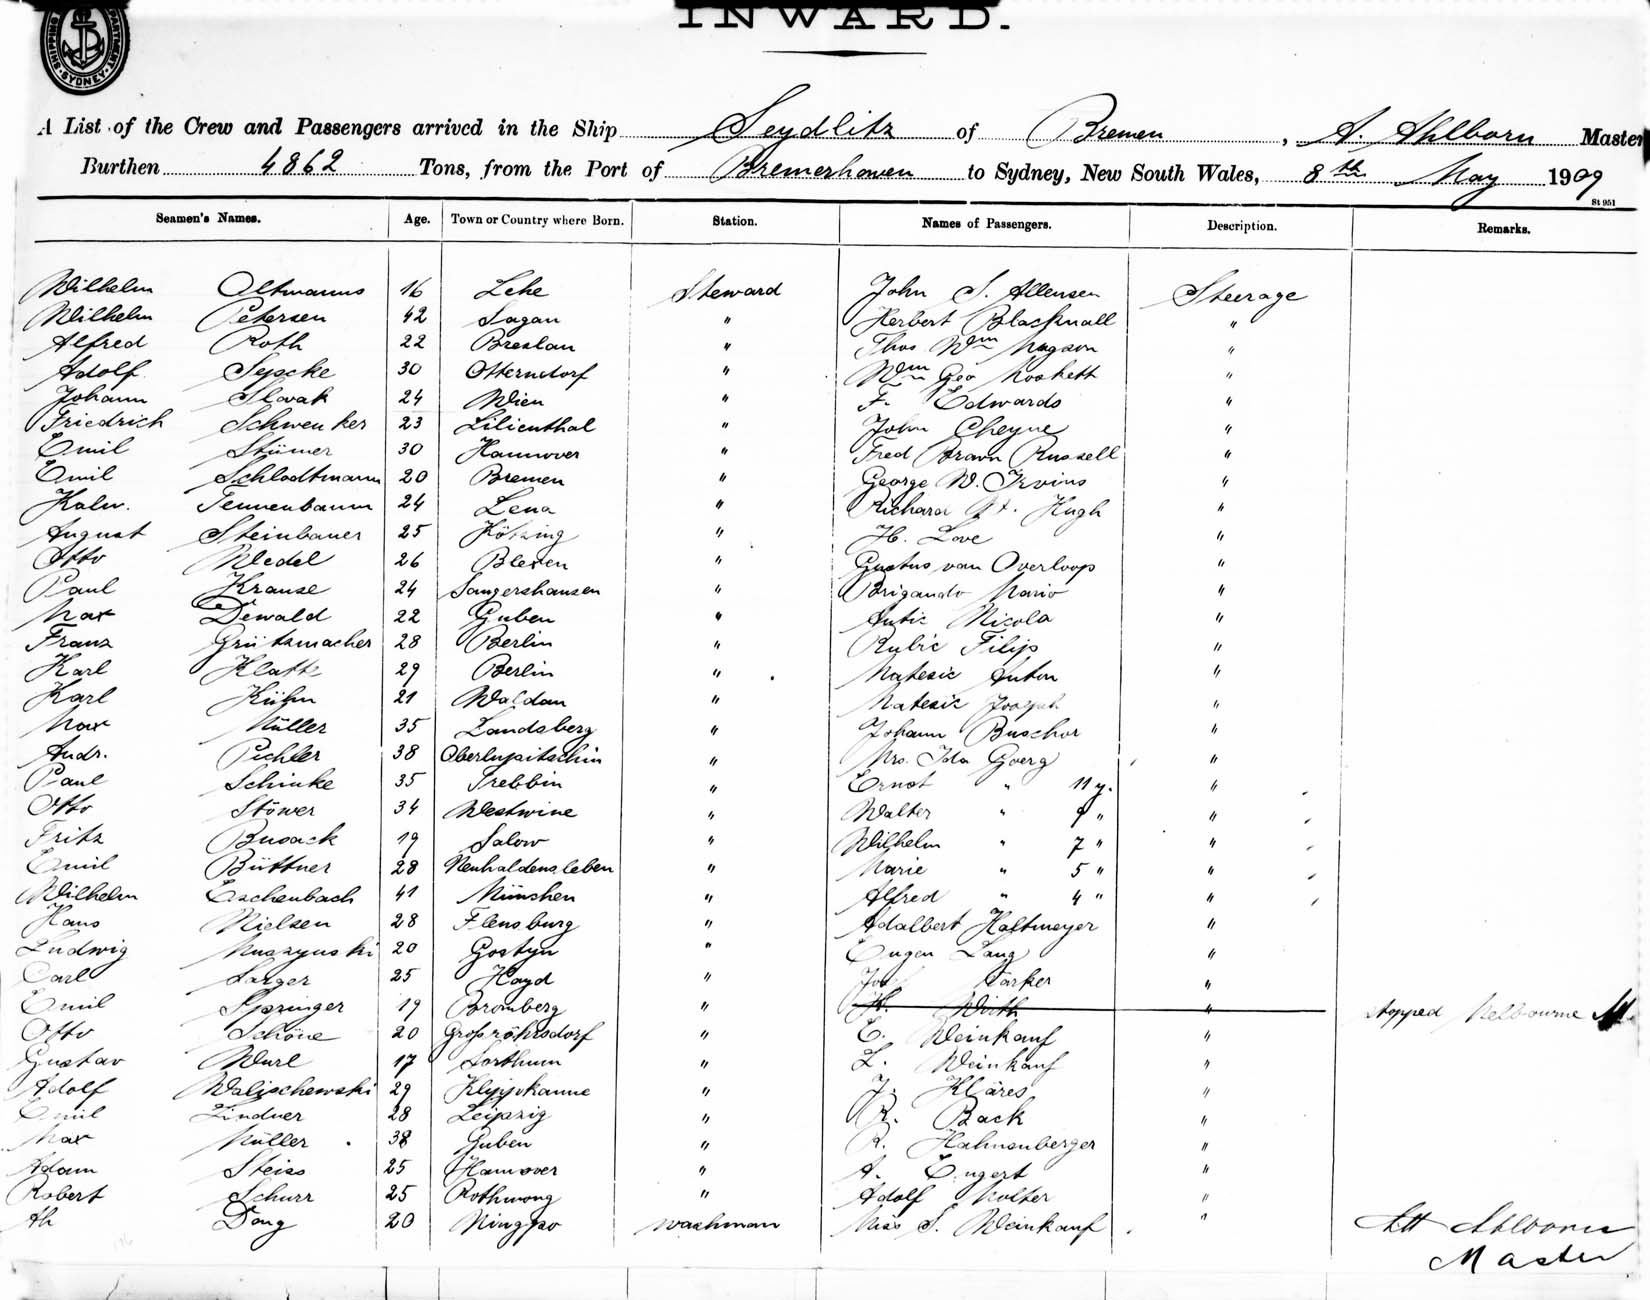 INWARD.
SHIPPING DEPARTMENT SYDNEY
A List of the Crew and Passengers arrived in the Ship Seydlitz of Bremen, A. Ahlborn Master
Burthen 4862 Tons, from the Port of Bremerhaven to Sydney, New South Wales, 8th May 1909
St 951
Seamen's Names. Age. Town or Country where Born. Station. Names of Passengers. Description. Remarks.
Wilhelm Oltmanns 16 Lehe Steward John S. Allensen Steerage
Wilhelm Petersen 42 Sagan " Herbert Blacknall "
Alfred Roth 22 Breslau " Thos Wm Mugson "
Adolf Sepcke 30 Otterndorf " Wm Geo "
Johann Slovak 24 Wien " F. Edwards "
Friedrich Schwenker 23 Lilienthal " John Cheyne "
Emil Stümer 30 Hannover " Fred Brown Russell "
Emil Schlodtmann 20 Bremen " George W. Irvins "
Kalm. Tennenbaum 24 Lena " Richard Hugh "
August Steinbauer 25 Kötzing " H. Love "
Otto Wedel 26 Blesen " Gustus van Overloop "
Paul Krause 24 Sangershausen " Brigando Mario "
Max Dewald 22 Guben " Antic Nicola "
Franz Grützmacher 28 Berlin " Rubic Filip "
Karl Klatt 29 Berlin " Matesic Anton "
Karl Kühn 21 Waldau " Matesic Joseph "
Max Müller 35 Landsberg " Johann Buschor "
Andr. Pichler 38 Oberlupitschin " Mrs. Ida Goerg "
Paul Schinke 35 Trebbin " Ernst " 11 y. "
Otto Stöwer 34 Westwine " Walter " 9 " "
Fritz Busack 19 Salow " Wilhelm " 7 " "
Emil Büttner 28 Neuhaldensleben " Marie " 5 " "
Wilhelm Eschenbach 41 München " Alfred " 4 " "
Hans Nielsen 28 Flensburg " Adalbert Haltmeyer "
Ludwig Muszynski 20 Gostyn " Eugen Lang "
Carl Larger 25 Hayd " Jos Tarker "
Emil Springer 19 Bromberg " H. Wirth " stopped Melbourne
Otto Schöne 20 Großröhrsdorf " E. Weinkauf "
Gustav Wurl 17 Lorthum " L. Weinkauf "
Adolf Walischewski 29 Klippkanne " J. Kläres "
Emil Lindner 28 Leipzig " R. Back "
Max Müller 38 Guben " R. Hahnenberger "
Adam Steiss 25 Hannover " A. Engert "
Robert Schurr 25 Rothwong " Adolf Molter "
Ah Dong 20 Ningpo washman Miss S. Weinkauf " Ahlborn
Master